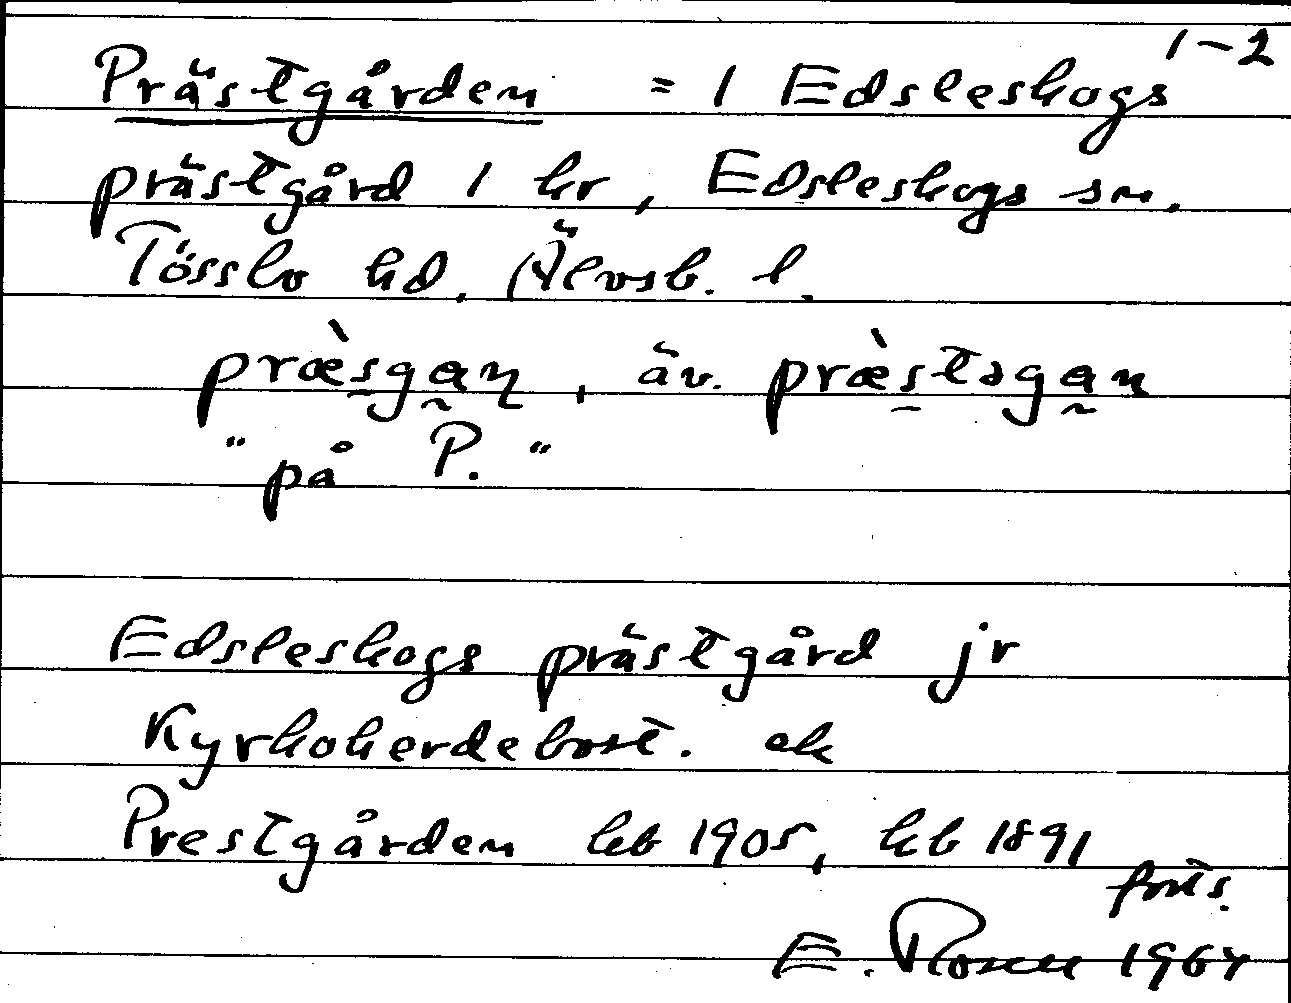 1-2
Prästgården = 1 Edsleskogs
prästgård 1 hr, Edsleskogs sn.
Tösslo hd. Älvsb. l.
præ̀sgan, äv. præ̀stagan
"på P."
Edsleskogs prästgård jr
Kyrkoherdebost. ek
Prestgården hb 1905, hb 1891
forts.
E. Rosen 1964